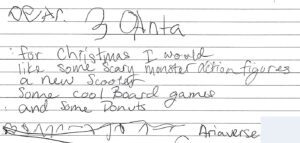 Dear
Santa
for Christmas I would
like some scary monster action figures
a new Scooter
Some cool Board games
and some Donuts
Ariaverse